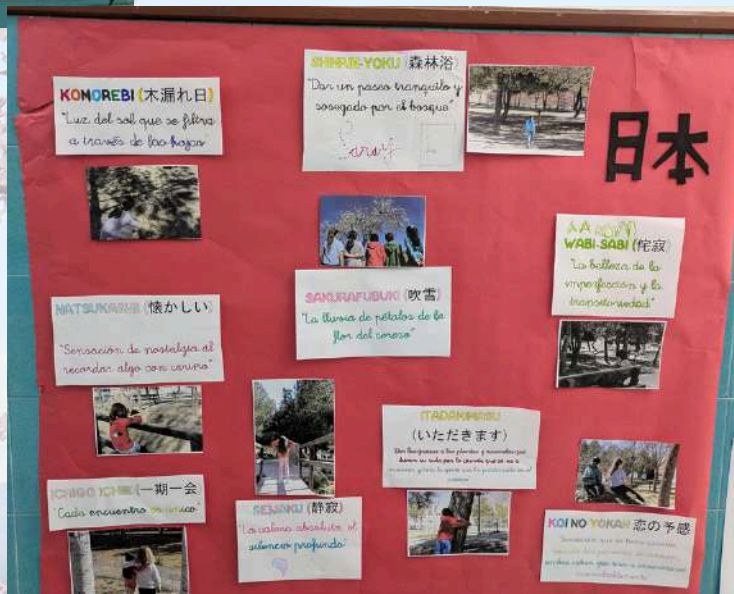 KOMOREBI (木漏れ日)
"Luz del sol que se filtra
a través de las hojas"
SHINRIN-YOKU (森林浴)
"Dar un paseo tranquilo y
sosegado por el bosque"
日本
WABI-SABI (侘寂)
"La belleza de la
imperfección y la
transitoriedad"
NATSUKASHII (懐かしい)
"Sensación de nostalgia al
recordar algo con cariño"
SAKURAFUBUKI (吹雪)
"La lluvia de pétalos de la
flor del cerezo"
ITADAKIMASU
(いただきます)
ICHIGO ICHIE (一期一会)
"Cada encuentro es único"
SEIJAKU (静寂)
"La calma absoluta, el
silencio profundo"
KOI NO YOKAN 恋の予感